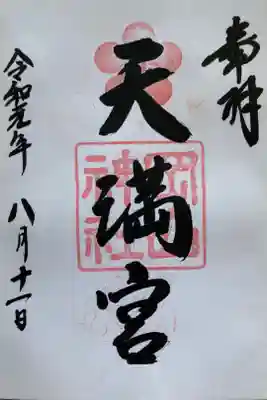 奉拝
天満宮
岡田神社
令和元年
八月十一日